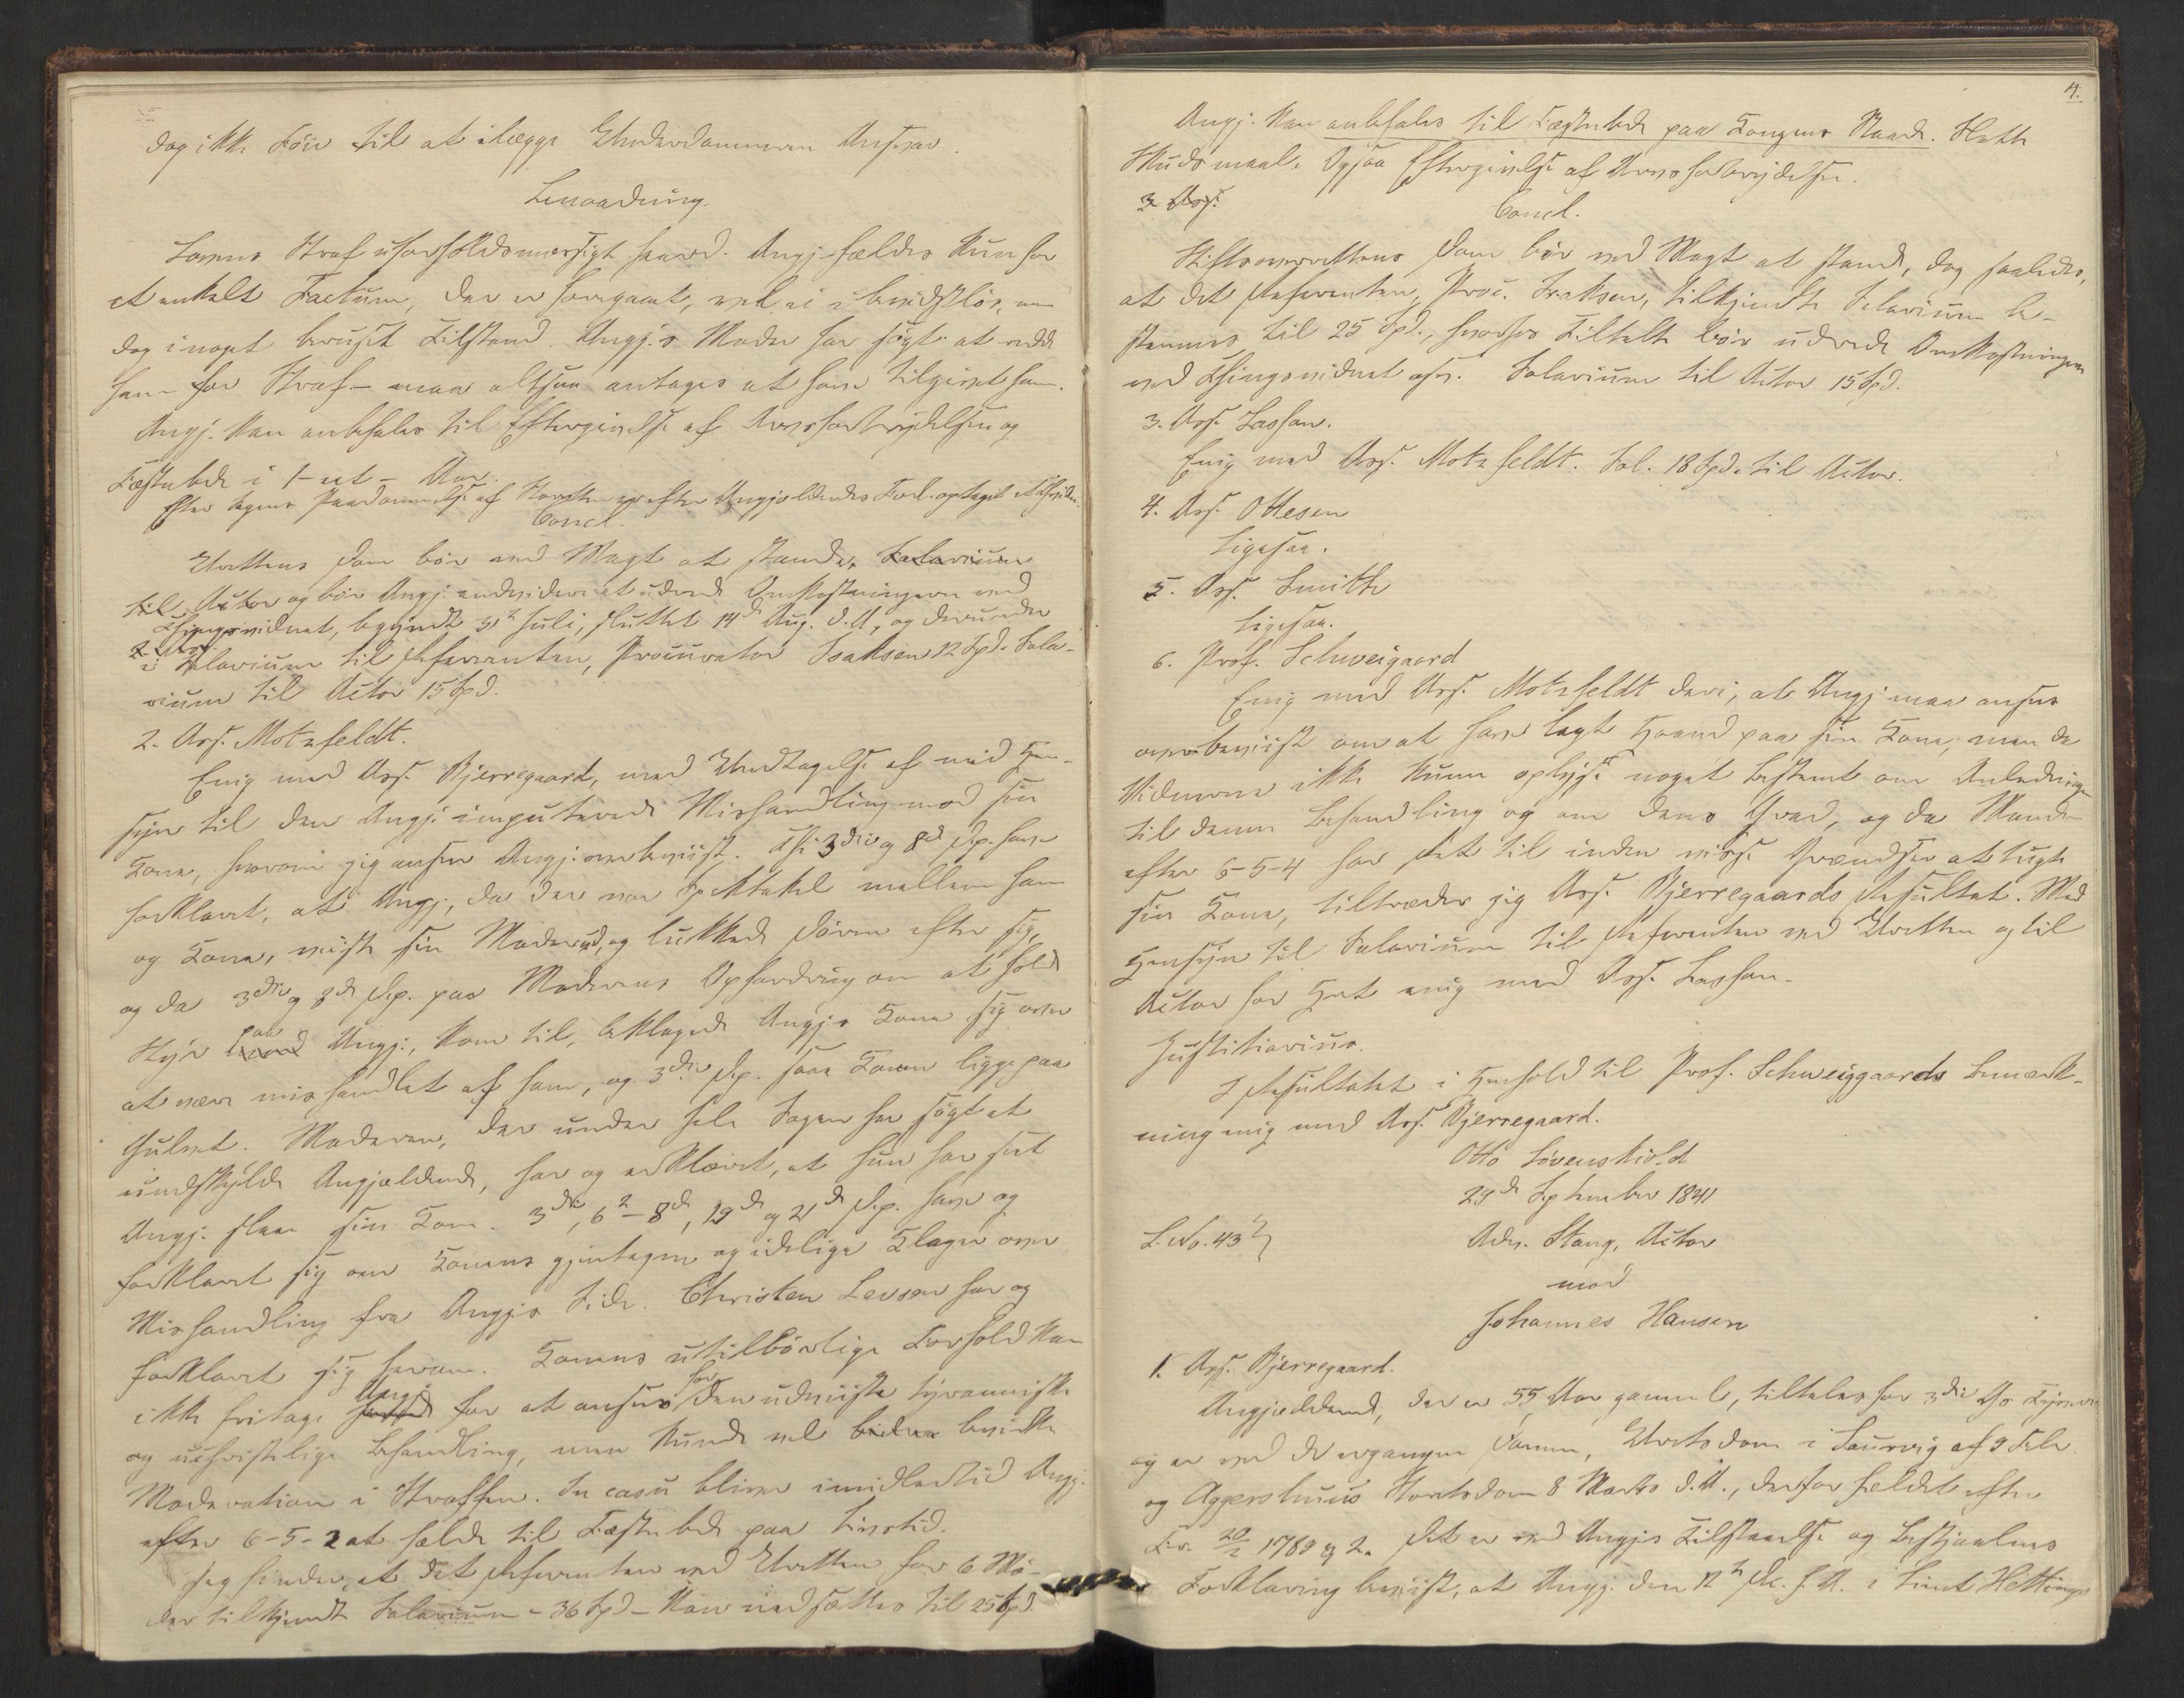 dog ikke Föie til at ilægge Underdommeren Ansvar.
Benaadning.
Lovens Straf uforholdsmæssigt haard. Angj. fældes kun for
et enkelt Factum, der er foregaaet, vel ei i bevidstløs, men
dog i noget beruset Tilstand. Angj.s Moder har søgt at redde
ham for Straf – maa altsaa antages at have tilgivet ham.
Angj. kan anbefales til Eftergivelse af Æresfortabelsen og
Fæstnbde i 1 – et – Aar.
Efter Sagens Paadømmelse af er efter Angjældendes Forl. optaget et Thingsvidne.
Concl.
Urettens Dom bør ved Magt at stande, Salarium
til Actor og bør Angj. endvidere at udrede Omkostningerne ved
Thingsvidnet, begyndt 31te Juli, sluttet 14de Aug. d. A., og derunder
2. Ass.
i Salarium til Referenten, Procurator Isaksen 12 Spd. Sala-
rium til Actor 15 Spd.
2. Ass. Motzfeldt.
Enig med Ass. Bjerregaard, med Undtagelse af med Hen-
syn til den Angj. imputerede Mishandling mod sin
Kone, hvorom jeg anser Angj. overbeviist. Thi 3die og 8de Dep. have
forklaret, at Angj., da der var Spektakel mellem ham
og Konen, viste sin Moder ud, og lukkede Dören efter sig,
og da 3die og 8de Dep. paa Moderens Opfordring om at holde
Styr paa Angj., kom til, beklagede Angjs Kone sig over
at være mishandlet af ham, og 3die Dep. saae Konen ligge paa
Gulvet. Moderen, der under hele Sagen har søgt at
undskylde Angjældende, har og erklæret, at hun har seet
Angj. slaae sin Kone. 3die, 6te – 8de, 19de og 21de Dep. have og
forklaret sig om Konens gjentagne og idelige Klager over
Mishandling fra Angjs Side. Christen Larsen har og
forklaret sig herom. Konens utilbørlige Forhold kan
ikke fritage Angj. for at ansees for den udviiste tyranniske
og uchristelige Behandling, men kunde vel bevirke
Moderation i Straffen. In casu bliver imidlertid Angj.
efter 6-5-2 at fælde til Fæstnbde paa Livstid.
Jeg finder, at det Referenten ved Uretten for 6 Mö-
der tilkjendte Salarium – 36 Spd – kan nedsættes til 25 Spd.
4.
Angj. kan anbefales til Fæstnbde paa Kongens Naade. Slette
Skudsmaal. Ogsaa Eftergivelse af Æresfortabelse.
3 Ass.
Concl.
Stiftsoverrettens Dom bør ved Magt at stande, dog saaledes,
at det Referenten, Proc. Isaksen, tilkjendte Salarium be-
stemmes til 25 Spd., hvorhos Tiltalte bør udrede Omkostningerne
ved Thingsvidnet osv. Salarium til Actor 15 Spd.
3. Ass. Lasson.
Enig med Ass. Motzfeldt. Sal. 18 Spd. til Actor.
4. Ass. Ottesen
Ligesaa.
5. Ass. Smith
Ligesaa.
6. Prof. Schweigaard
Enig med Ass. Motzfeldt deri, at Angj. maa ansees
overbeviist om at have lagt Haand paa sin Kone, men da
Vidnerne ikke kunne oplyse noget bestemt om Anledningen
til denne Behandling og om dens Grad, og da Manden
efter 6-5-4 har Ret til inden visse Grændser at tugte
sin Kone, tiltræder jeg Ass. Bjerregaards Resultat. Med
Hensyn til Salarium til Referenten ved Uretten og til
Actor for Hret enig med Ass. Lasson.
Justitiarius.
I Resultatet i Henhold til Prof. Schweiggaards Bemærk-
ning enig med Ass. Bjerregaard.
Otto Lövenskiold
29de September 1841
L. No. 43
Adv. Stang, Actor
mod
Johannes Hansen
1. Ass. Bjerregaard.
Angjældende, der er 55 Aar gammel, tiltales for 3die G Tyverie
og er ved de ergangne Domme, Uretsdom i Laurvig af 9 Febr.
og Aggershuus Stortsdom 8 Marts d. A., derfor fældet efter
Fr. 20/2 1789 § 2. Det er ved Angjs Tilstaaelse og Bestjaalnes
Forklaring beviist, at Angj. den 12te Dec. f. A. i